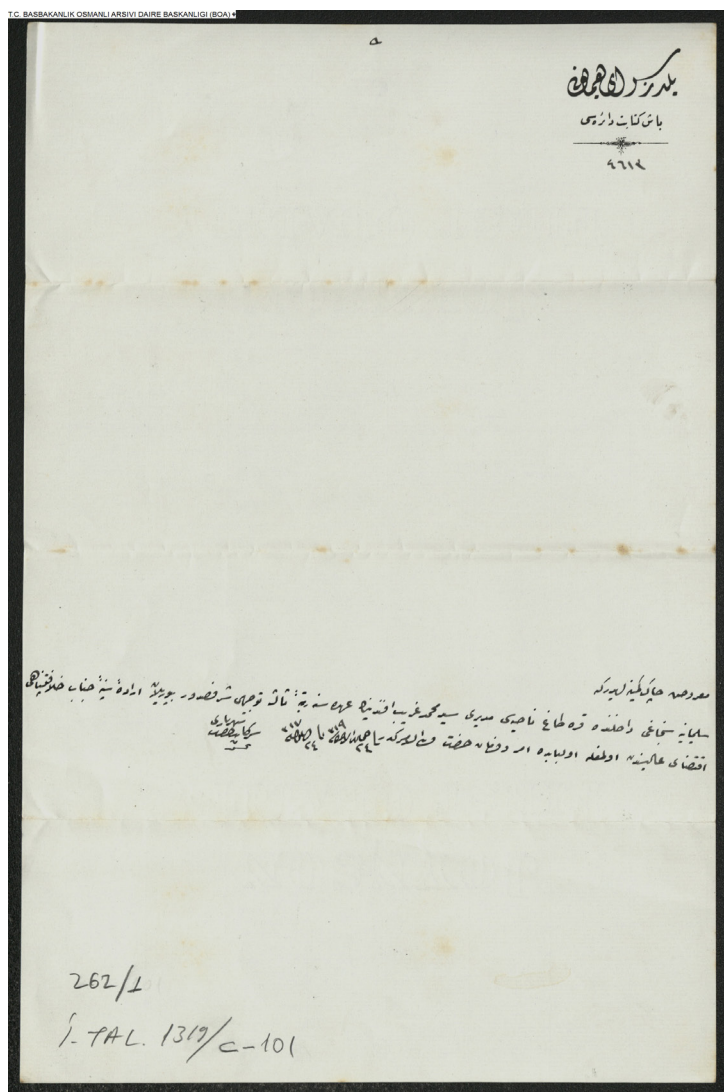 T.C. BASBAKANLIK OSMANLI ARSIVI DAIRE BASKANLIGI (BOA)
یلدیز سرای همایونی
باش کتابت دائره‌سی
٤٦١٣
معروض چاکر کمینه‌لریدر که
سلیمانیه سنجاغی داخلنده قره طاغ ناحیه‌سی مدیری سید محمد غریب افندینك عهده‌سنه رتبهٔ ثالثه توجیهی شرفصدور بیوریلان ارادهٔ سنیهٔ جناب خلافتپناهی
اقتضای عالیسندن اولمغله اولبابده امر و فرمان حضرت ولی الامرکدر فی ٢٤ جمادی الاخره سنه ٣١٩ و فی ٢٤ ایلول سنه ٣١٧
سرکاتب حضرت شهریاری
262/1
İ. TAL. 1319/C-101